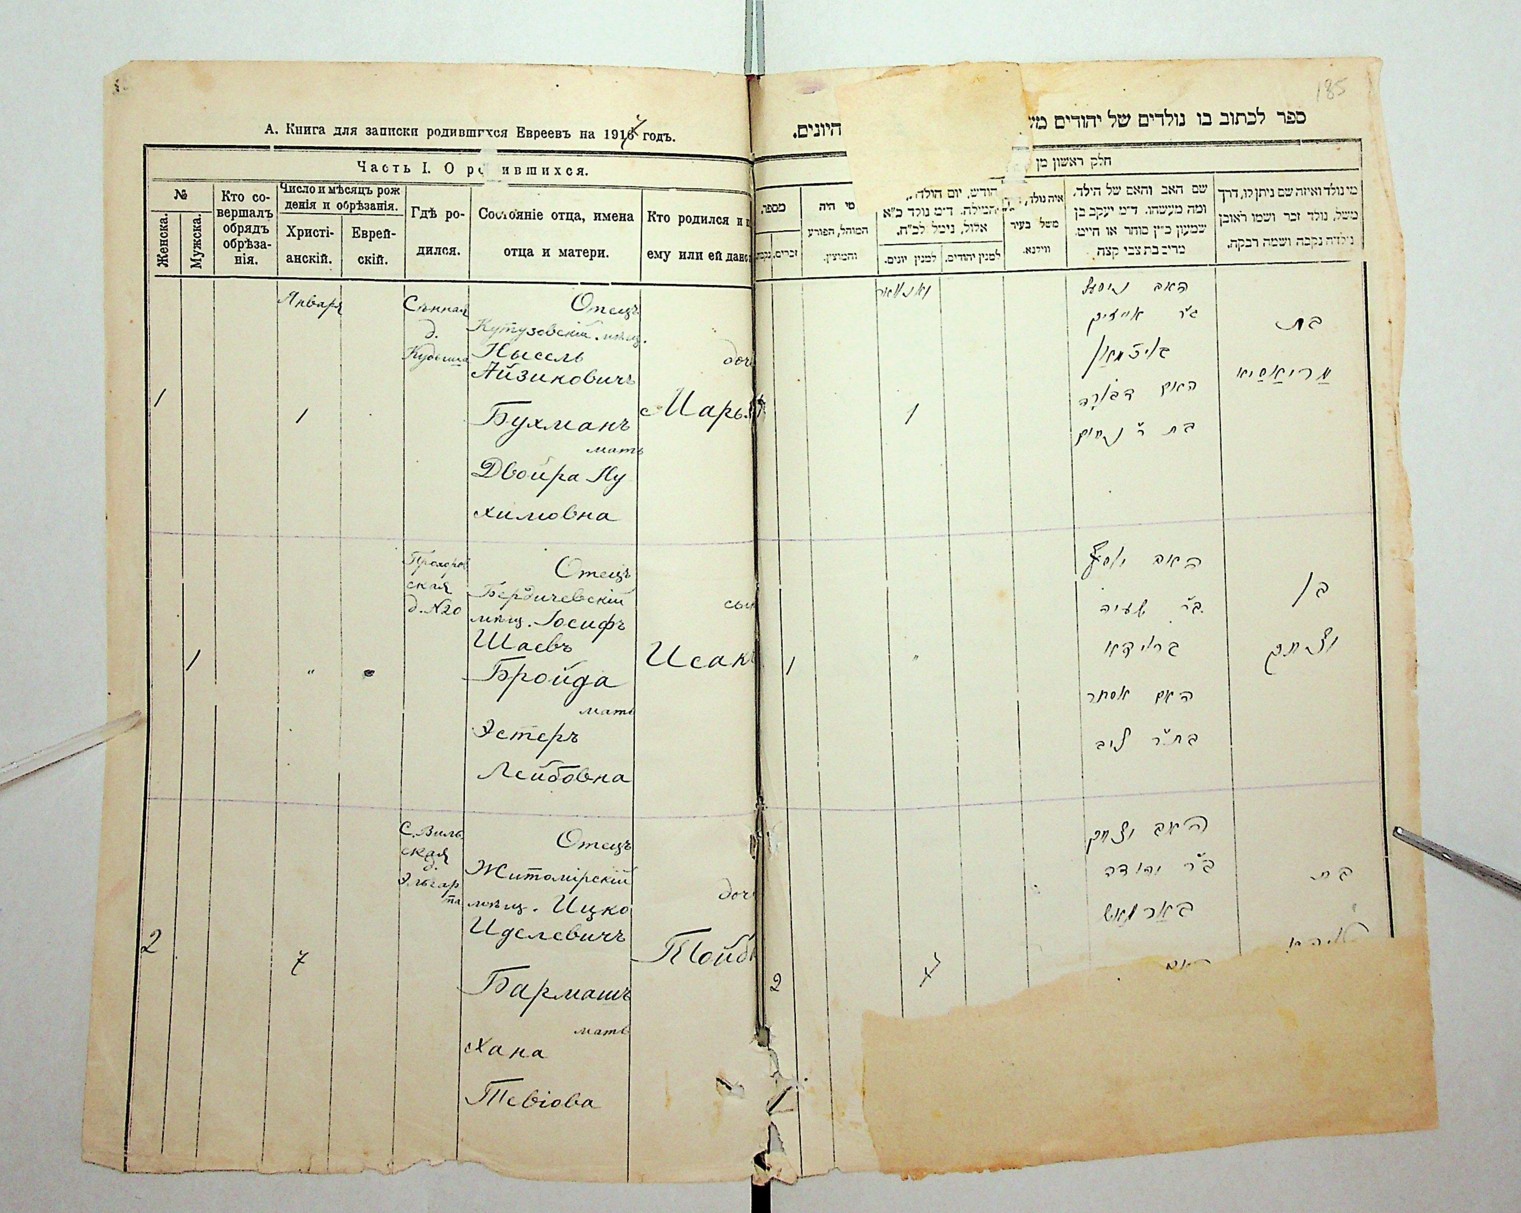 А. Книга для записки родившихся Евреевъ на 1917 годъ.
Часть I. О родившихся.
№
Женска.
Мужска.
Кто со-
вершалъ
обрядъ
обрѣза-
нія.
Число и мѣсяцъ рож
денія и обрѣзанія.
Христі-
анскій.
Еврей-
скій.
Гдѣ ро-
дился.
Состояніе отца, имена
отца и матери.
Кто родился и
ему или ей дано
1
Января
1
Сѣнная
д.
Отецъ
Кутузовскій мѣщ.
Нысель
Айзиковичъ
Бухманъ
мать
Двойра Ну
химовна
доч
Марья
1
"
Прохоров
ская
д. №20
Отецъ
Бердичевскій
мѣщ. Іосифъ
Шаевъ
Бройда
мать
Эстеръ
Лейбовна
сын
Исакъ
2
7
С. Виль
ская
д.
Отецъ
Житомірскій
мѣщ. Ицко
Иделевичъ
Бармашъ
мать
Хана
Тевіова
доч
Тойб
185
ספר לכתוב בו נולדים של יהודים
היונים.
חלק ראשון מן
מספר
זכרים.
מי היה
המוהל, הפורע
והמוצץ.
חודש, יום הולדת,
והמילה. ד״מ נולד כ״א
אלול, נימול לכ״ח.
למנין יונים.
למנין יהודים.
איה נולד,
משל בעיר
ווילנא.
שם האב והאם של הילד,
ומה מעשהו. ד״מ יעקב בן
שמעון כ״ץ סוחר או חייט.
מרים בת צבי קצה
מי נולד ואיזה שם ניתן לו, דרך
משל, נולד זכר ושמו ראובן
נולדה נקבה ושמה רבקה.
יאנואר
1
האב ניסעל
ב״ר אייזיק
בוכמאן
האם דבורה
בת ר׳ נחום
בת
מריאסיא
1
"
האב יוסף
ב״ר שעיה
ברוידא
האם אסתר
בת״ר ליב
בן
יצחק
2
7
האב יצחק
ב״ר יהודה
בארמאש
האם
בת